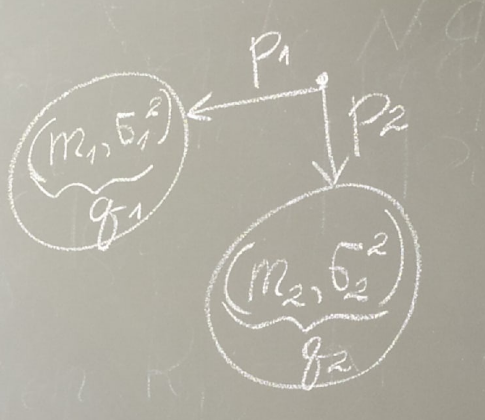 p1
p2
(m1, σ1²)
q1
(m2, σ2²)
q2